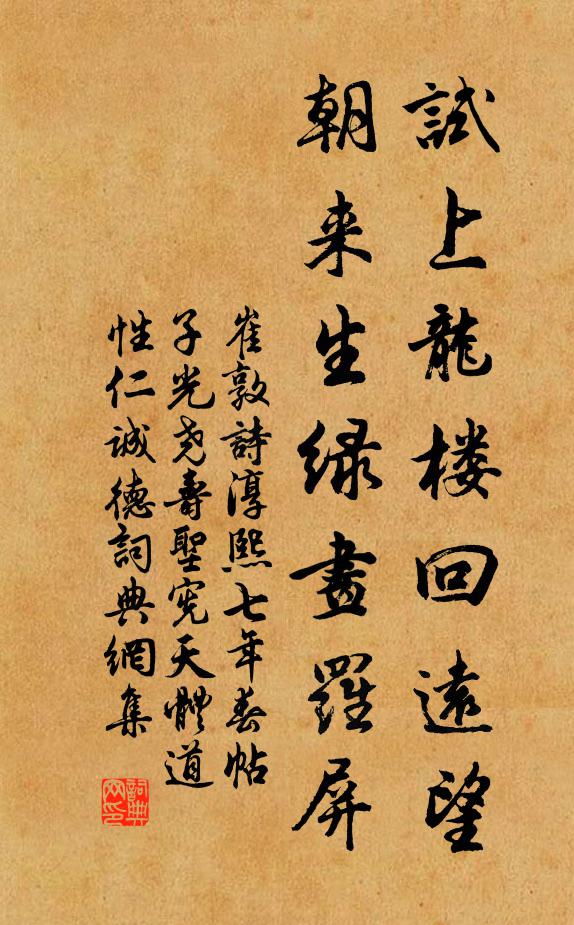 試上龍楼回遠望
朝来生緑畫羅屏
崔敦詩淳熙七年春帖
子光尧壽聖憲天體道
性仁誠德詞典網集
詞典
网印